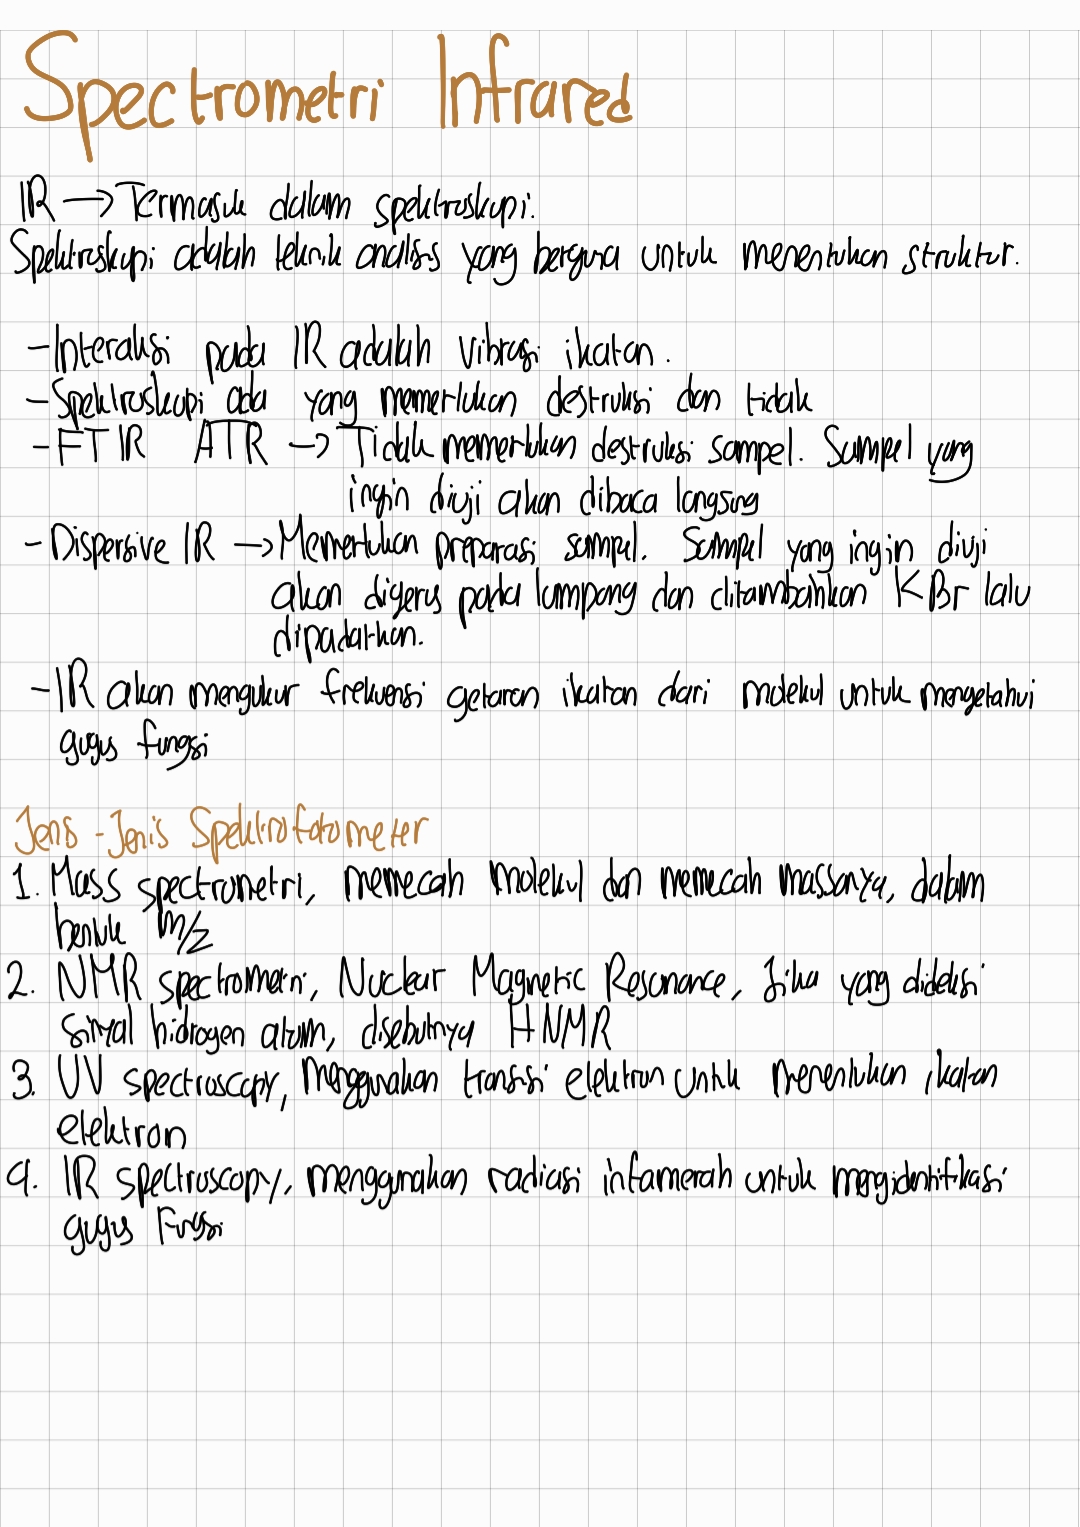 Spectrometri Infrared
IR → Termasuk dalam spektroskopi.
Spektroskopi adalah teknik analisis yang berguna untuk menentukan struktur.
- Interaksi pada IR adalah vibrasi ikatan.
- Spektroskopi ada yang memerlukan destruksi dan tidak
- FTIR ATR → Tidak memerlukan destruksi sampel. Sampel yang
ingin diuji akan dibaca langsung
- Dispersive IR → Memerlukan preparasi sampel. Sampel yang ingin diuji
akan digerus pada lumpang dan ditambahkan KBr lalu
dipadatkan.
- IR akan mengukur frekuensi getaran ikatan dari molekul untuk mengetahui
gugus fungsi
Jenis - Jenis Spektrofotometer
1. Mass spectrometri, memecah molekul dan memecah massanya, dalam
bentuk m/z
2. NMR spectrometri, Nuclear Magnetic Resonance, Jika yang dideksi
sinyal hidrogen atum, disebutnya HNMR
3. UV spectroscopy, menggunakan transisi elektron untuk menentukan ikatan
elektron
4. IR spectroscopy, menggunakan radiasi infamerah untuk mengidentifikasi
gugus Fungsi